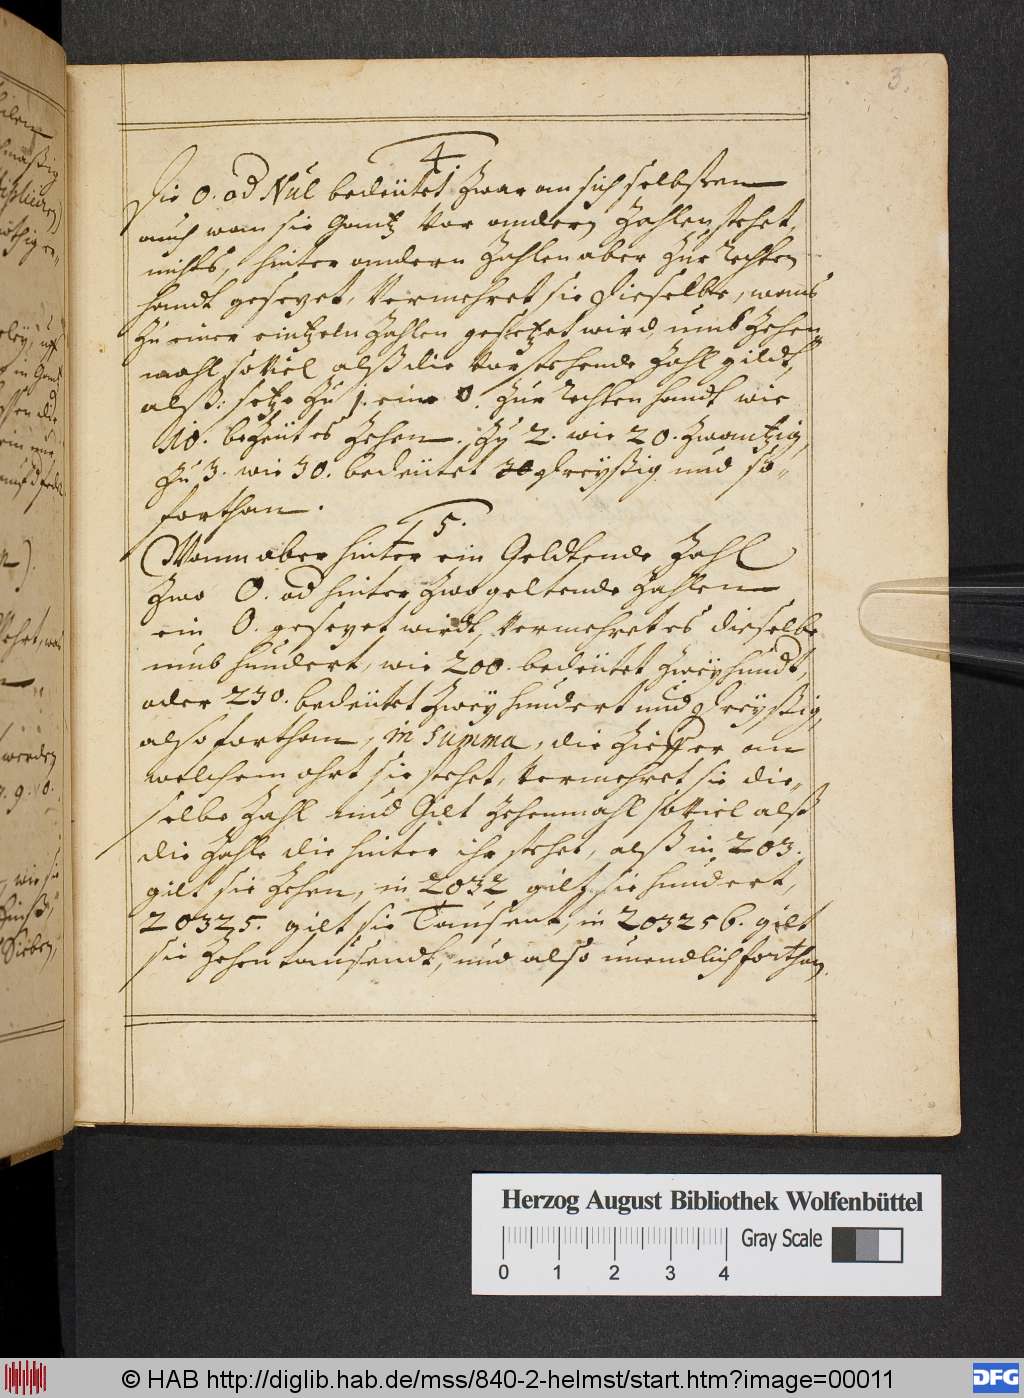 3.
4.
Die 0. od Nul bedeütet zwar an sich selbsten
auch wan sie gantz vor andern Zahlen stehet,
nichts, hinter andern Zahlen aber zur rechten
handt gesezet, vermehret sie dieselbe, wans
zu einer eintzeln Zahlen gesetzet wird, umb zehen
mahl soviel alß die vorstehende Zahl gildt,
alß: setze zu 1. eine 0. zur rechten handt wie
10. bezeüt es zehen. Zu 2. wie 20. zwantzig,
zu 3. wie 30. bedeütet dreyßig und so
forthan.
5.
Wann aber hinter ein Geldtende Zahl
zwo 0. od hinter zwo geltende Zahlen
ein 0. gesezet wirdt, vermehret es dieselbe
umb hundert, wie 200. bedeütet zweyhundt,
oder 230. bedeütet zwey hundert und dreyßig,
also forthan, in summa, die Zieffer an
welchem ohrt sie stehet, vermehret sie die„
selbe Zahl und Gilt zehenmahl soviel alß
die Zahle die hinter ihr stehet, alß in 203.
gilt sie zehen, in 2032 gilt sie hundert,
20325. gilt sie Tausent, in 203256. gilt
sie zehen tausendt, und also unendlich forthan.
Herzog August Bibliothek Wolfenbüttel
Gray Scale
0 1 2 3 4
© HAB http://diglib.hab.de/mss/840-2-helmst/start.htm?image=00011
DFG